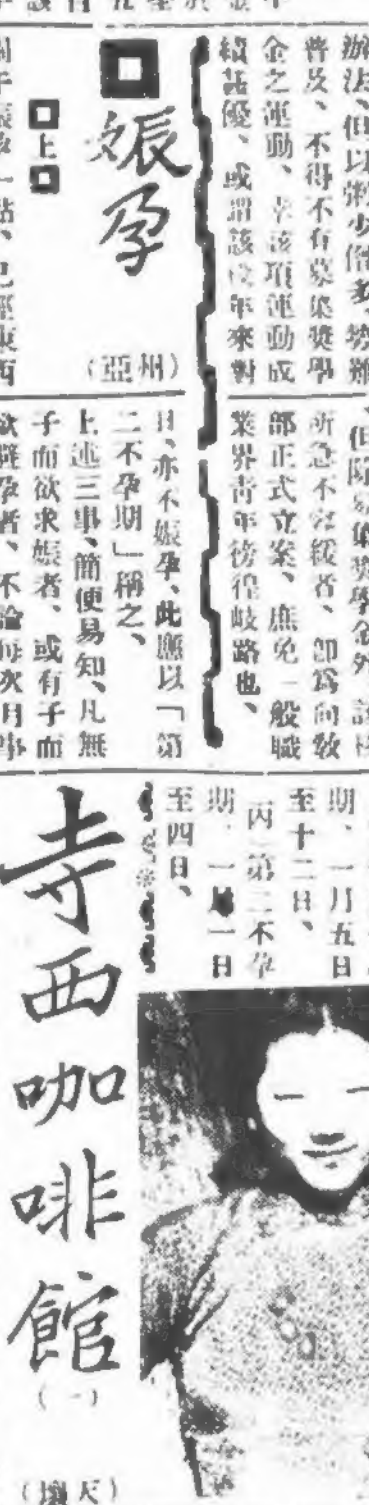 辦法、但以粥少僧多、勢難
普及、不得不有募集獎學
金之運動、幸該項運動成
績甚優、或謂該校年來對
所急不容緩者、卽爲向敎
部正式立案、庶免一般職
業界靑年徬徨岐路也、
娠孕
上
(亞州)
日、亦不娠孕、此應以「第
二不孕期」稱之、
上述三事、簡便易知、凡無
子而欲求娠者、或有子而
欲避孕者、不論每次月事
期、一月五日
至十二日、
丙 第二不孕
期、一日
至四日、
寺西咖啡館
(一)
(天壤)